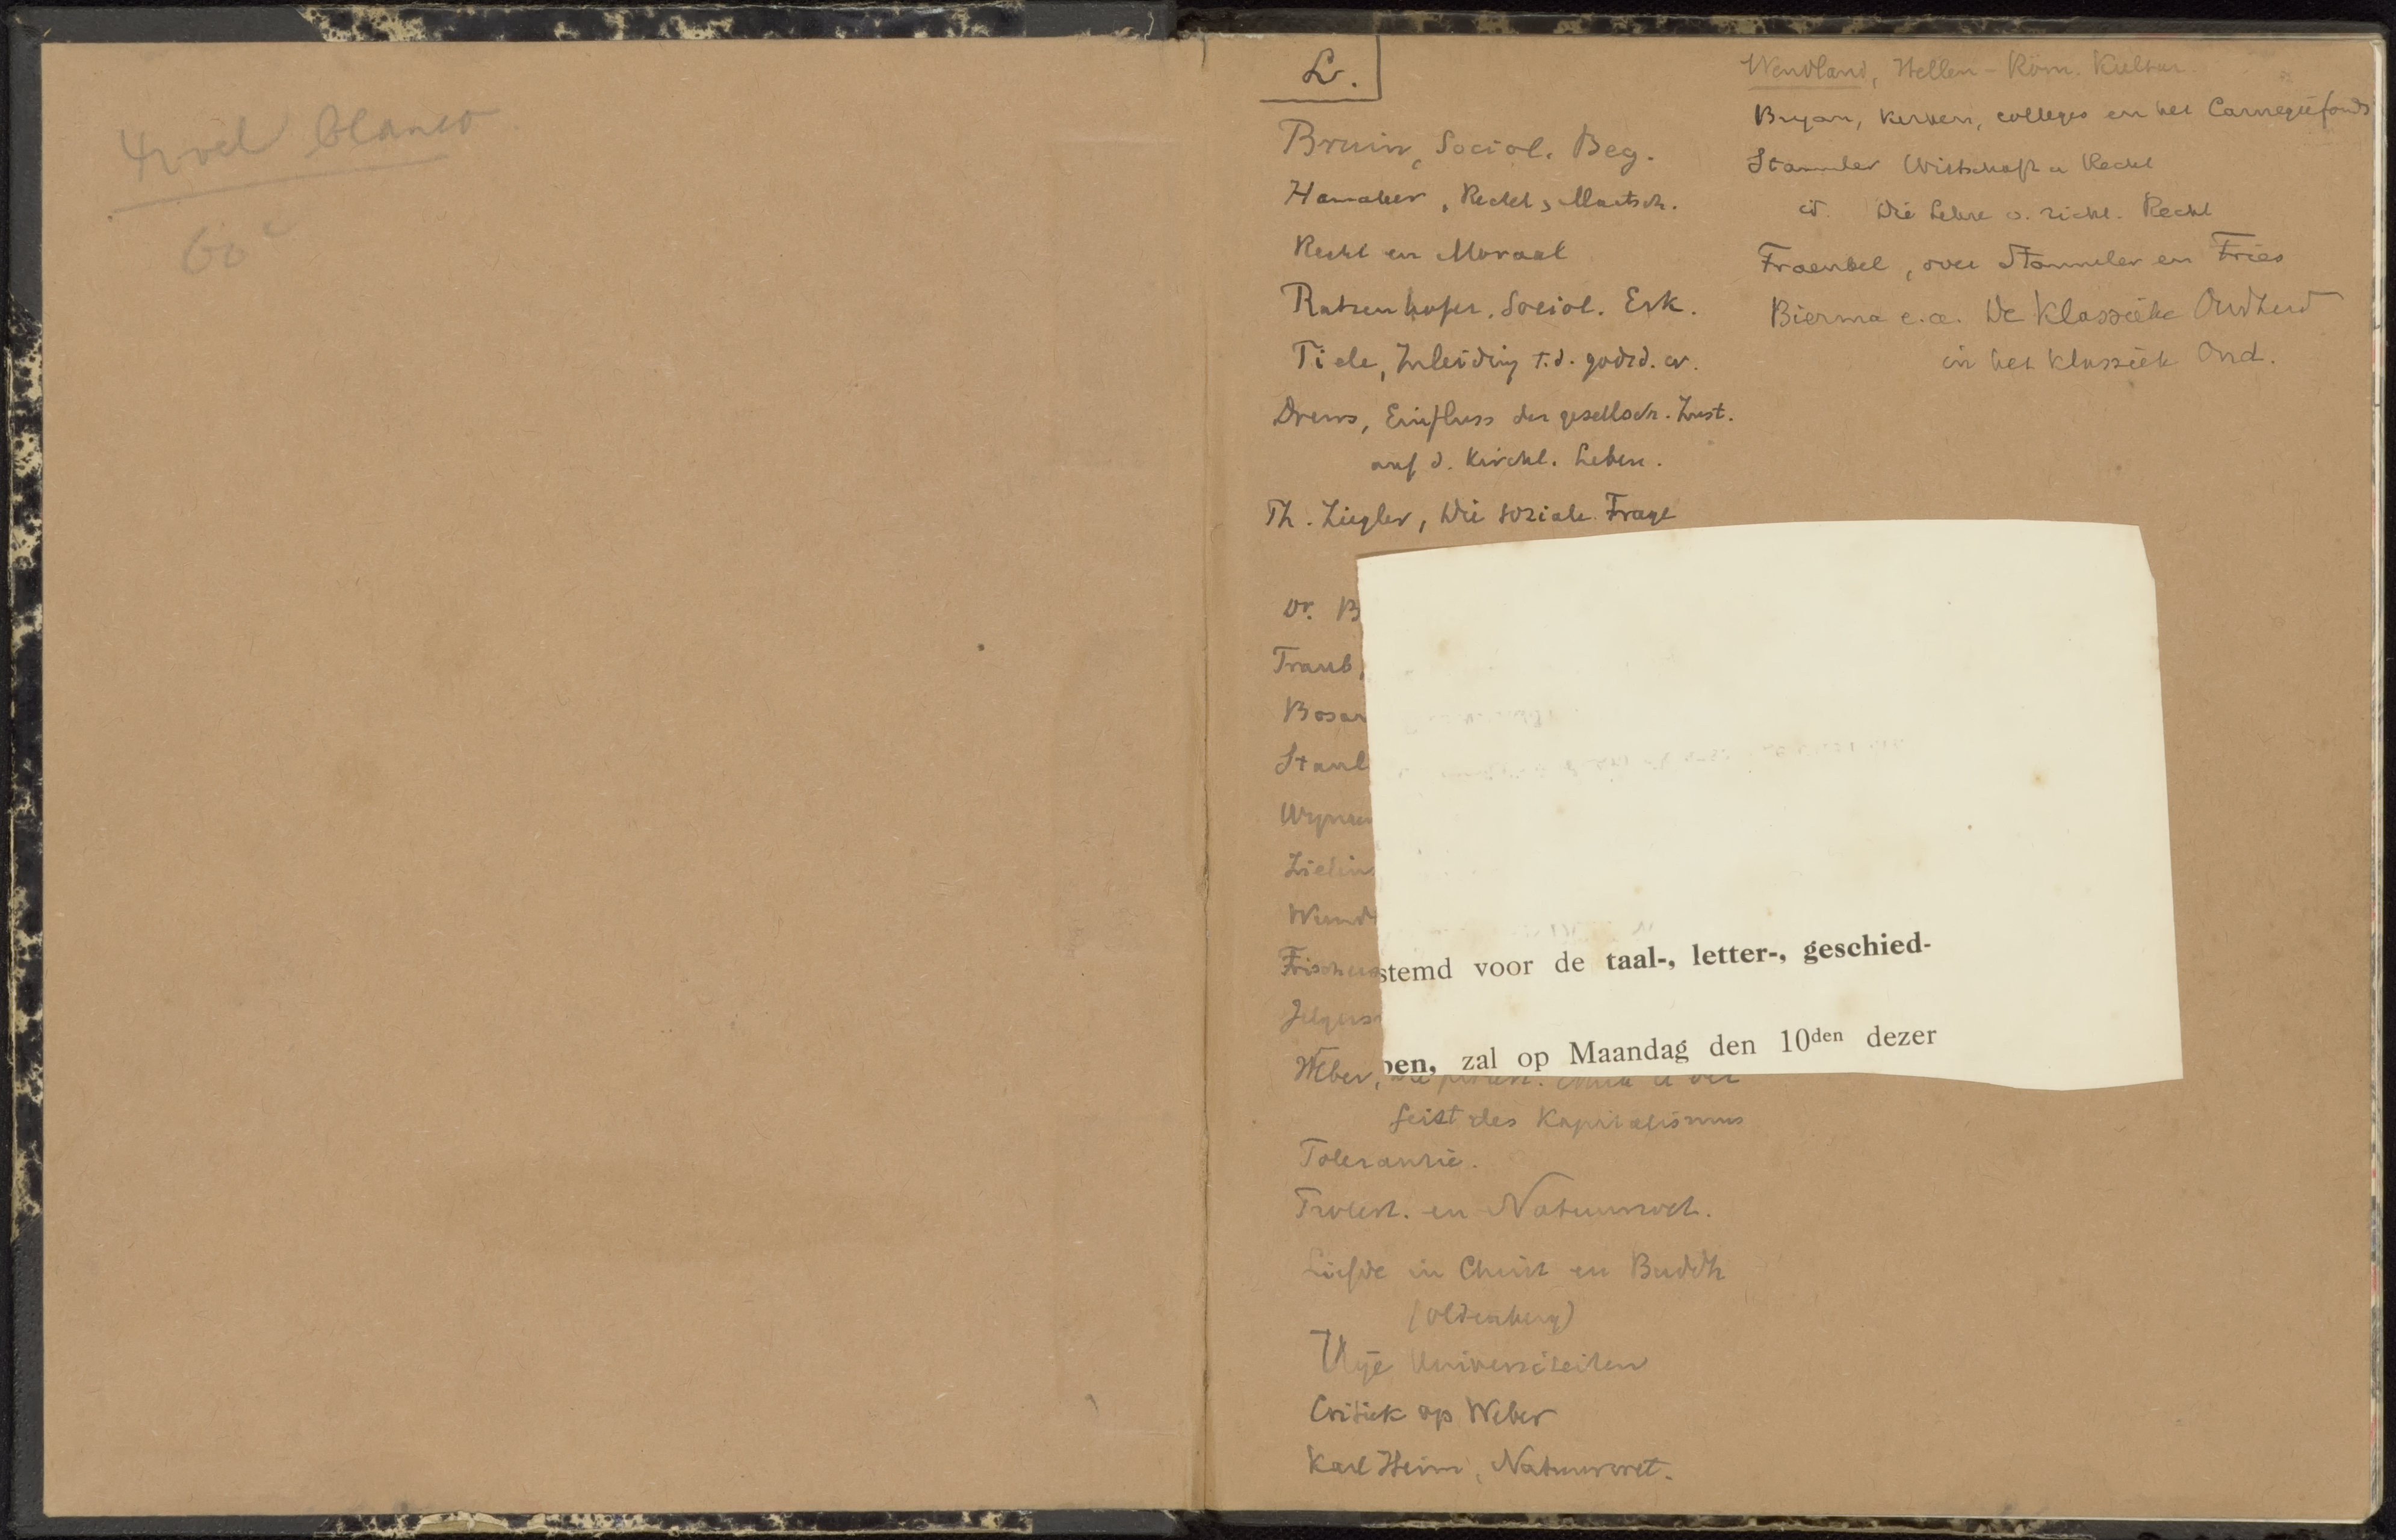 blanco
60
L.
Bruin, Sociol. Beg.
Hamaker, Recht, Maatsch.
Recht en Moraal
Ratzenhofer, Sociol. Erk.
Tiele, Inleiding t.d. godsd. w.
Drews, Einfluss der gesellsch. Zust.
auf d. Kirchl. Leben.
Th. Ziegler, Die soziale Frage
Dr. B
Traub,
Bosan
Staul
Wijnae
Zielins
Wundt
Frischeis
Jelgers
Weber,
Geist des Kapitalismus
Tolerantie.
Troelt. en Natuurrecht.
Liefde in Christ en Buddh
(Oldenberg)
Vrije Universiteiten
Critiek op Weber
Karl Heim, Natuurwet.
Wendland, Hellen-Röm. Kultur.
Bryan, Kerken, colleges en het Carnegiefonds
Stammler Wirtschaft u Recht
id. Die Lehre v. richt. Recht
Fraenkel, over Stammler en Fries
Bierma e.a. De Klassieke Oudheid
in het klassiek Ond.
stemd voor de taal-, letter-, geschied-
pen, zal op Maandag den 10den dezer